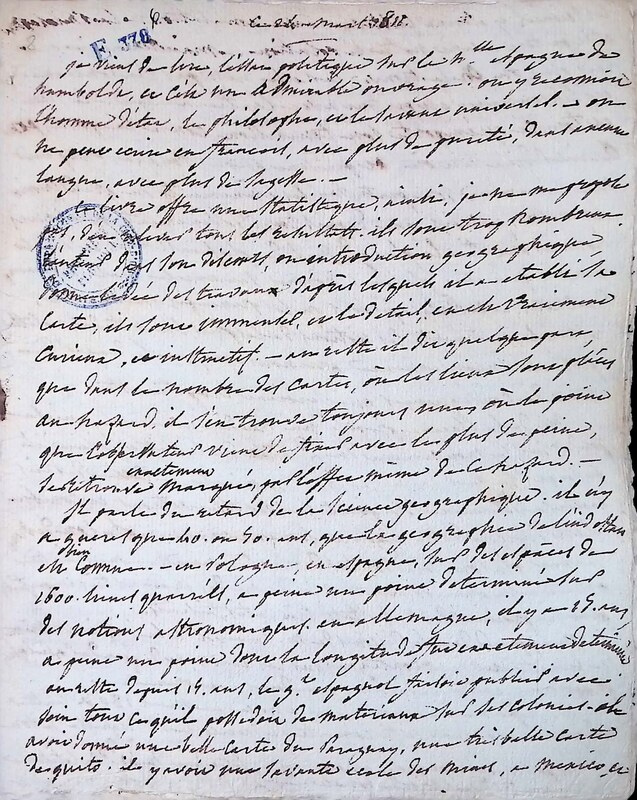 le 24 mars 1811.
F. 376
je viens de lire, l'essai politique sur le nlle espagne de
humbolde, et c'est un admirable ouvrage. on y reconnoit
l'homme d'état, le philosophe, et le savant universel. — on
ne peut ecrire en françois, avec plus de pureté, dans aucune
langue, avec plus de sagesse. —
ce livre offre une statistique, ainsi, je ne me propose
pas, d'en tous les resultats. ils sont trop nombreux.
dans son discours ou introduction geographique
donne l'idée des travaux d'après lesquels il a etabli sa
carte, ils sont immenses, et le detail, en est vraiment
curieux, et instructif. — au reste il dit quelque part,
que dans le nombre des cartes, où les lieux sont placés
au hazard, il s'en trouve toujours une, où le point
que l'observateur vient de fixer avec le plus de peine,
se retrouve exactement marqué, par l'effet même de ce hazard. —
Il parle du retard de la science geographique. il n'y
a guères que 40. ou 50. ans, que la geographie de l'indostan
est bien connue. — en Pologne, en espagne, sur des espaces de
1600. lieues quarrées, a peine un point determiné sur
des notions astronomiques. en allemagne, il y a 25. ans,
a peine un point dont la longitude fut exactement determinée
au reste depuis 15. ans, le gt espagnol faisoit publier avec
soin tout ce qu'il possedoit de materiaux sur ses colonies. il
avoit donné une belle carte du Paraguay, une très belle carte
de quito. il y avoit une savante ecole des mines, a mexico, et